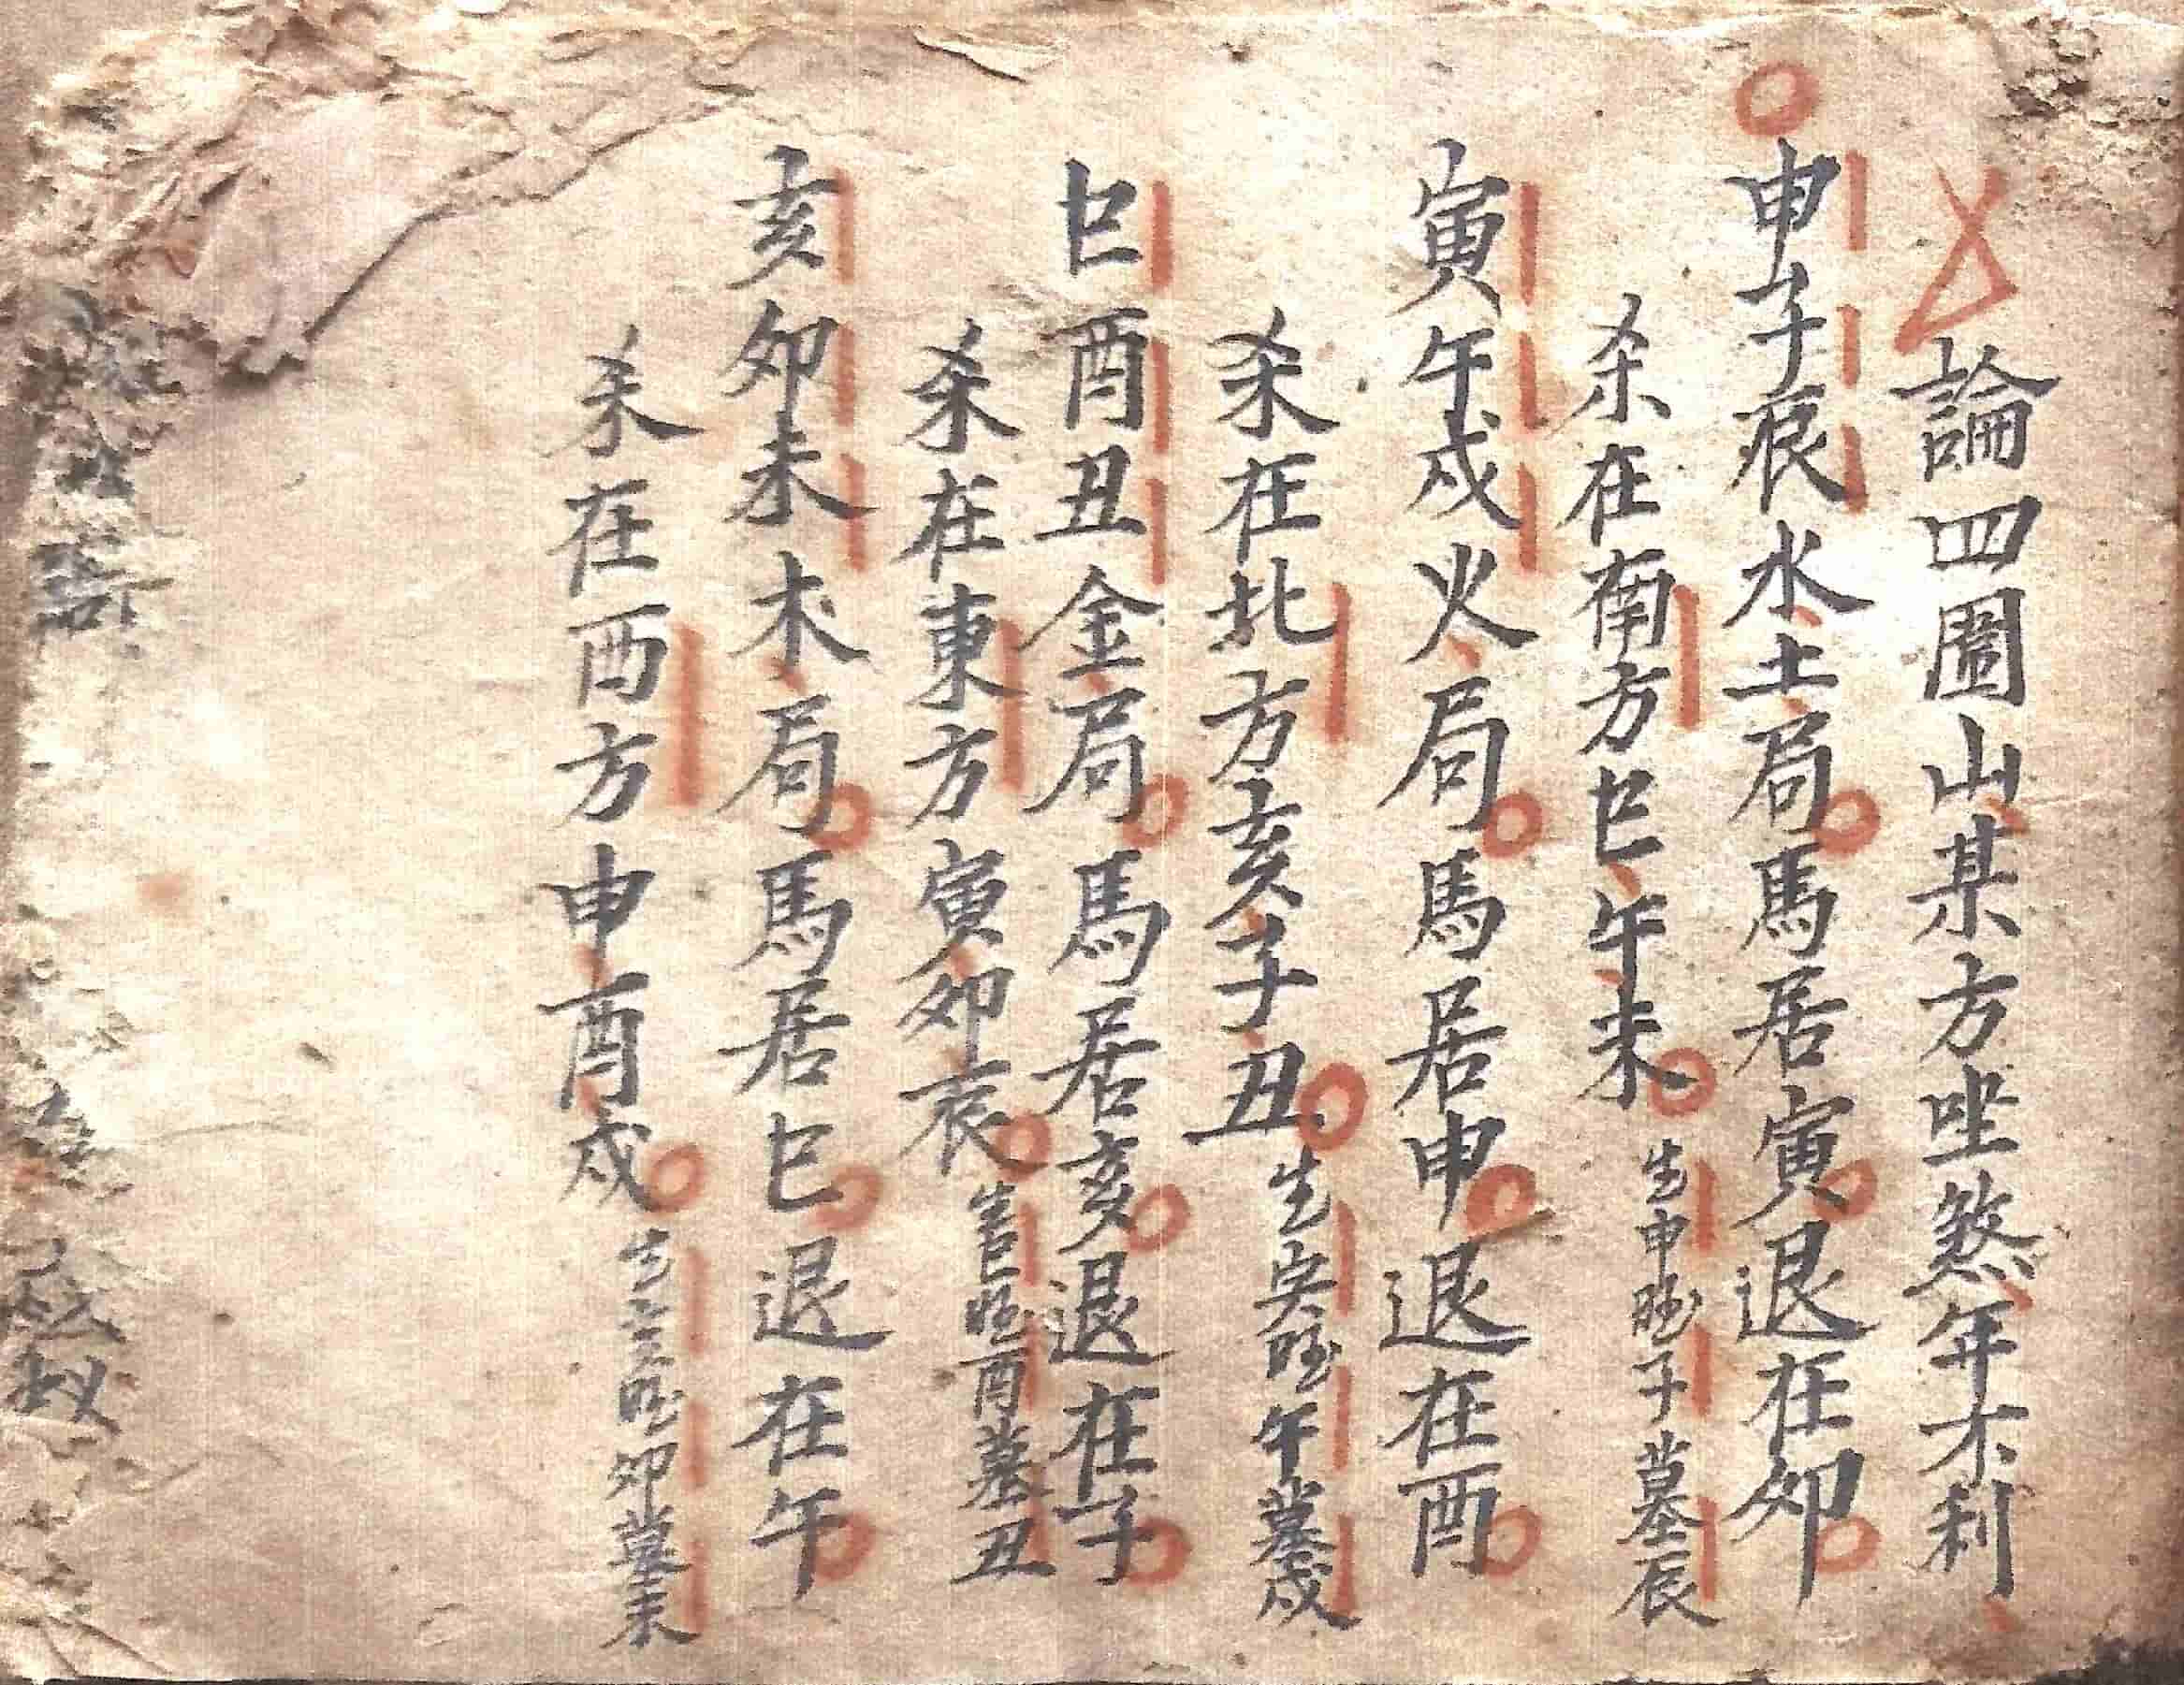 論四圖山某方坐煞年不利
申子辰水土局馬居寅退在卯
杀在南方巳午未生申旺子墓辰
寅午戌火局馬居申退在酉
杀在北方亥子丑生寅旺午墓戌
巳酉丑金局馬居亥退在子
杀在東方寅卯辰生巳旺酉墓丑
亥卯未木局馬居巳退在午
杀在酉方申酉戌生亥旺卯墓未